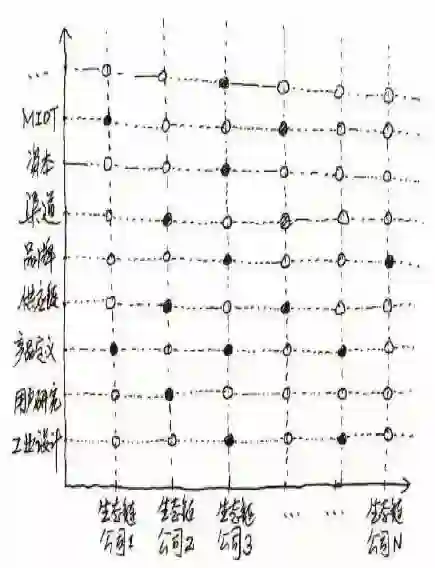 ……
MIOT
资本
渠道
品牌
供应链
产品定义
用户研究
工业设计
生态链公司1
生态链公司2
生态链公司3
……
……
生态链公司N